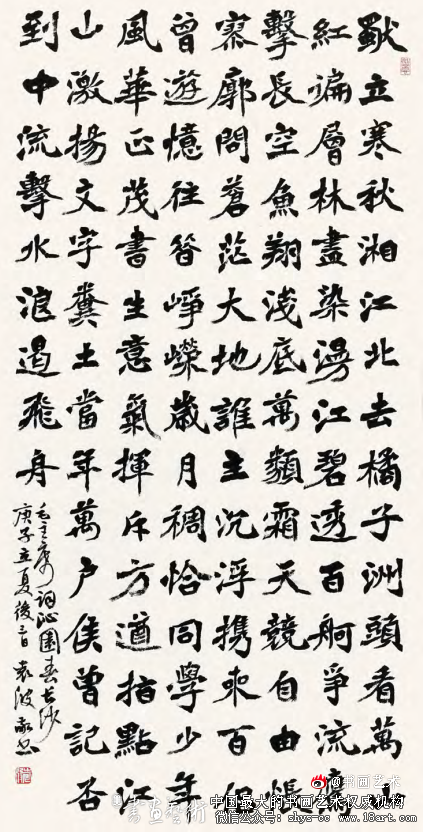 獨立寒秋湘江北去橘子洲頭看萬
紅遍層林盡染漫江碧透百舸爭流
擊長空魚翔淺底萬類霜天競自由悵
寥廓問蒼茫大地誰主沉浮携來百侣
曾遊憶往昔崢嶸歲月稠恰同學少年
風華正茂書生意氣揮斥方遒指點江
山激揚文字糞土當年萬户侯曾記否
到中流擊水浪遏飛舟
毛主席詞沁園春長沙
庚子立夏後三日袁波敬書
书画艺术
書畫藝術
中国最大的书画艺术权威机构
微信公众号: www.18art.com